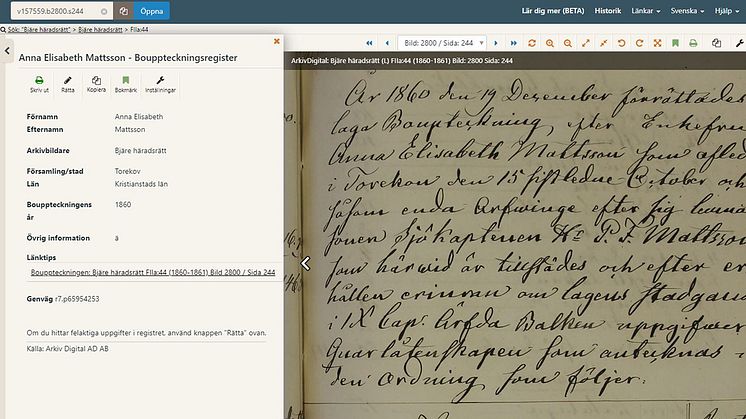 v157559.b2800.s244
Öppna
Lär dig mer (BETA) Historik Länkar Svenska Hjälp
Sök: "Bjäre häradsrätt" > Bjäre häradsrätt > FIIa:44
Bild: 2800 / Sida: 244
ArkivDigital: Bjäre häradsrätt (L) FIIa:44 (1860-1861) Bild: 2800 Sida: 244
Anna Elisabeth Mattsson - Bouppteckningsregister
Skriv ut Rätta Kopiera Bokmärk Inställningar
Förnamn Anna Elisabeth
Efternamn Mattsson
Arkivbildare Bjäre häradsrätt
Församling/stad Torekov
Län Kristianstads län
Bouppteckningens år 1860
Övrig information ä
Länktips
Bouppteckningen: Bjäre häradsrätt FIIa:44 (1860-1861) Bild 2800 / Sida 244
Genväg r7.p65954253
Om du hittar felaktiga uppgifter i registret, använd knappen "Rätta" ovan.
Källa: Arkiv Digital AD AB
År 1860 den 19 December förrättades
laga Bouptekning efter Enkefru
Anna Elisabeth Mattsson som afled
i Torekov den 15 sistledne October och
såsom enda Arfwinge efter sig lemna
sonen Sjökaptenen Hr P. F. Mattsson
som härwid är tillstädes och efter er
hållen erinran om lagens stadgan
i IX Cap. Ärfda Balken uppgifwer
Quarlåtenskapen som antecknas
den Ordning som följer: